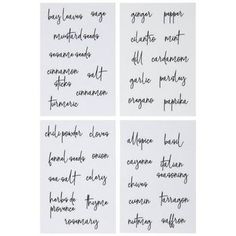 bay leaves sage
mustard seeds
sesame seeds
cinnamon
sticks salt
cinnamon
turmeric
ginger pepper
cilantro mint
dill cardamom
garlic parsley
oregano paprika
chili powder cloves
fennel seeds onion
sea salt celery
herbs de
provence thyme
rosemary
allspice basil
cayenne italian
seasoning
chives
cumin tarragon
nutmeg saffron